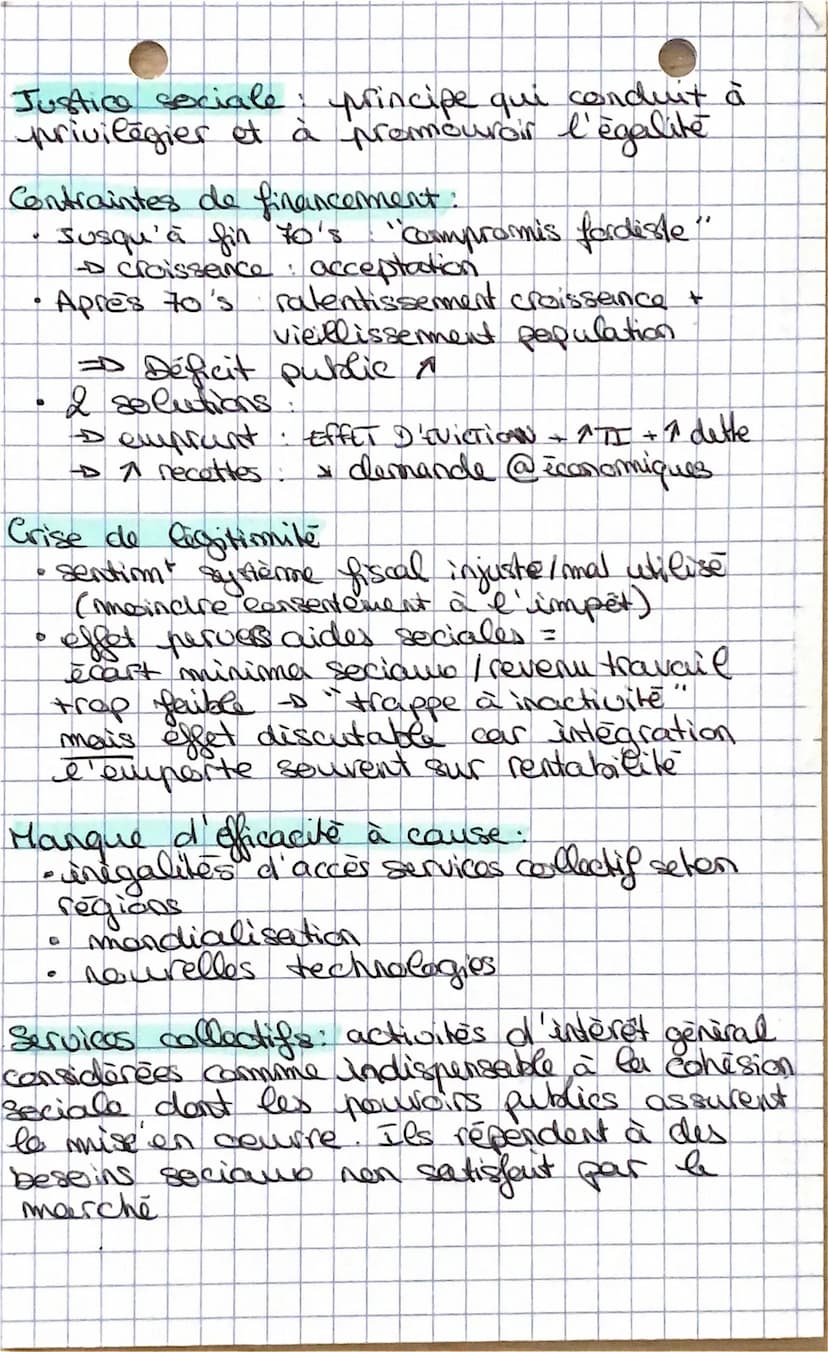 Justice sociale : principe qui conduit à
privilégier et à promouvoir l'égalité
Contraintes de financement :
• Jusqu'à fin 70's : "compromis fordiste"
→ croissance : acceptation
• Après 70's : ralentissement croissance +
vieillissement population
⇒ Déficit public ↑
• 2 solutions :
→ emprunt : EFFET D'EVICTION + ↑ TI + ↑ dette
→ ↑ recettes : ↘ demande @ économiques
Crise de légitimité
• sentimt système fiscal injuste / mal utilisé
(moindre consentement à l'impôt)
• effet pervers aides sociales =
écart minima sociaux / revenu travail
trop faible → "trappe à inactivité"
mais effet discutable car intégration
l'emporte souvent sur rentabilité
Manque d'efficacité à cause :
• inégalités d'accès services collectif selon
régions
• mondialisation
• nouvelles technologies
Services collectifs : activités d'intérêt général
considérées comme indispensable à la cohésion
sociale dont les pouvoirs publics assurent
la mise en oeuvre. Ils répondent à des
besoins sociaux non satisfait par le
marché